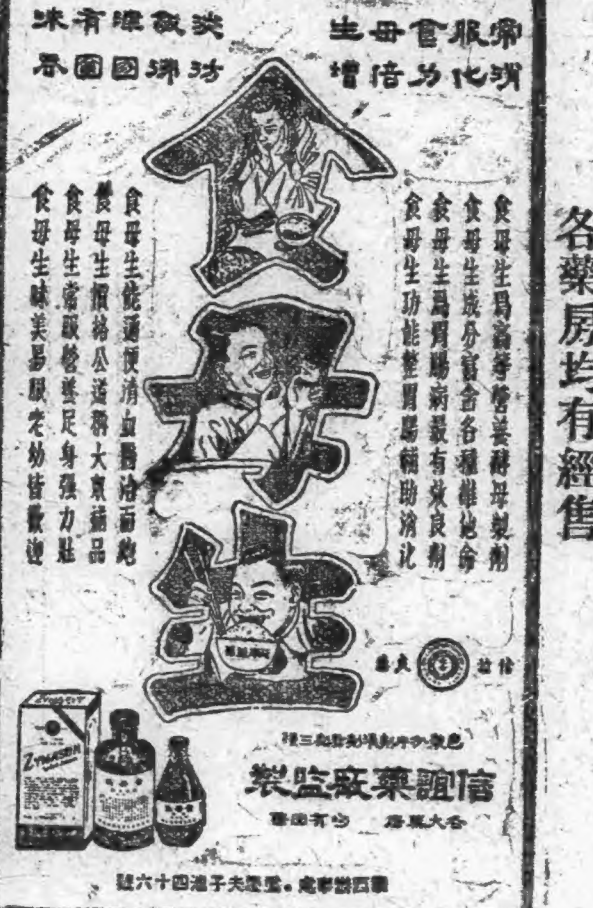 常服食母生
消化力倍增
淡飯濃有味
食母生
食母生爲高等營養酵母製劑
食母生成分富含各種維他命
食母生爲胃腸病最有效良劑
食母生功能整胃腸輔助消化
食母生能通便清血醫治面皰
食母生價格公道稱大衆補品
食母生常服營養足身強力壯
食母生味美易服老幼皆歡迎
信誼
良藥
三種
信誼藥廠監製
各大藥房
均有出售
夫子池四十六號
各藥房均有經售